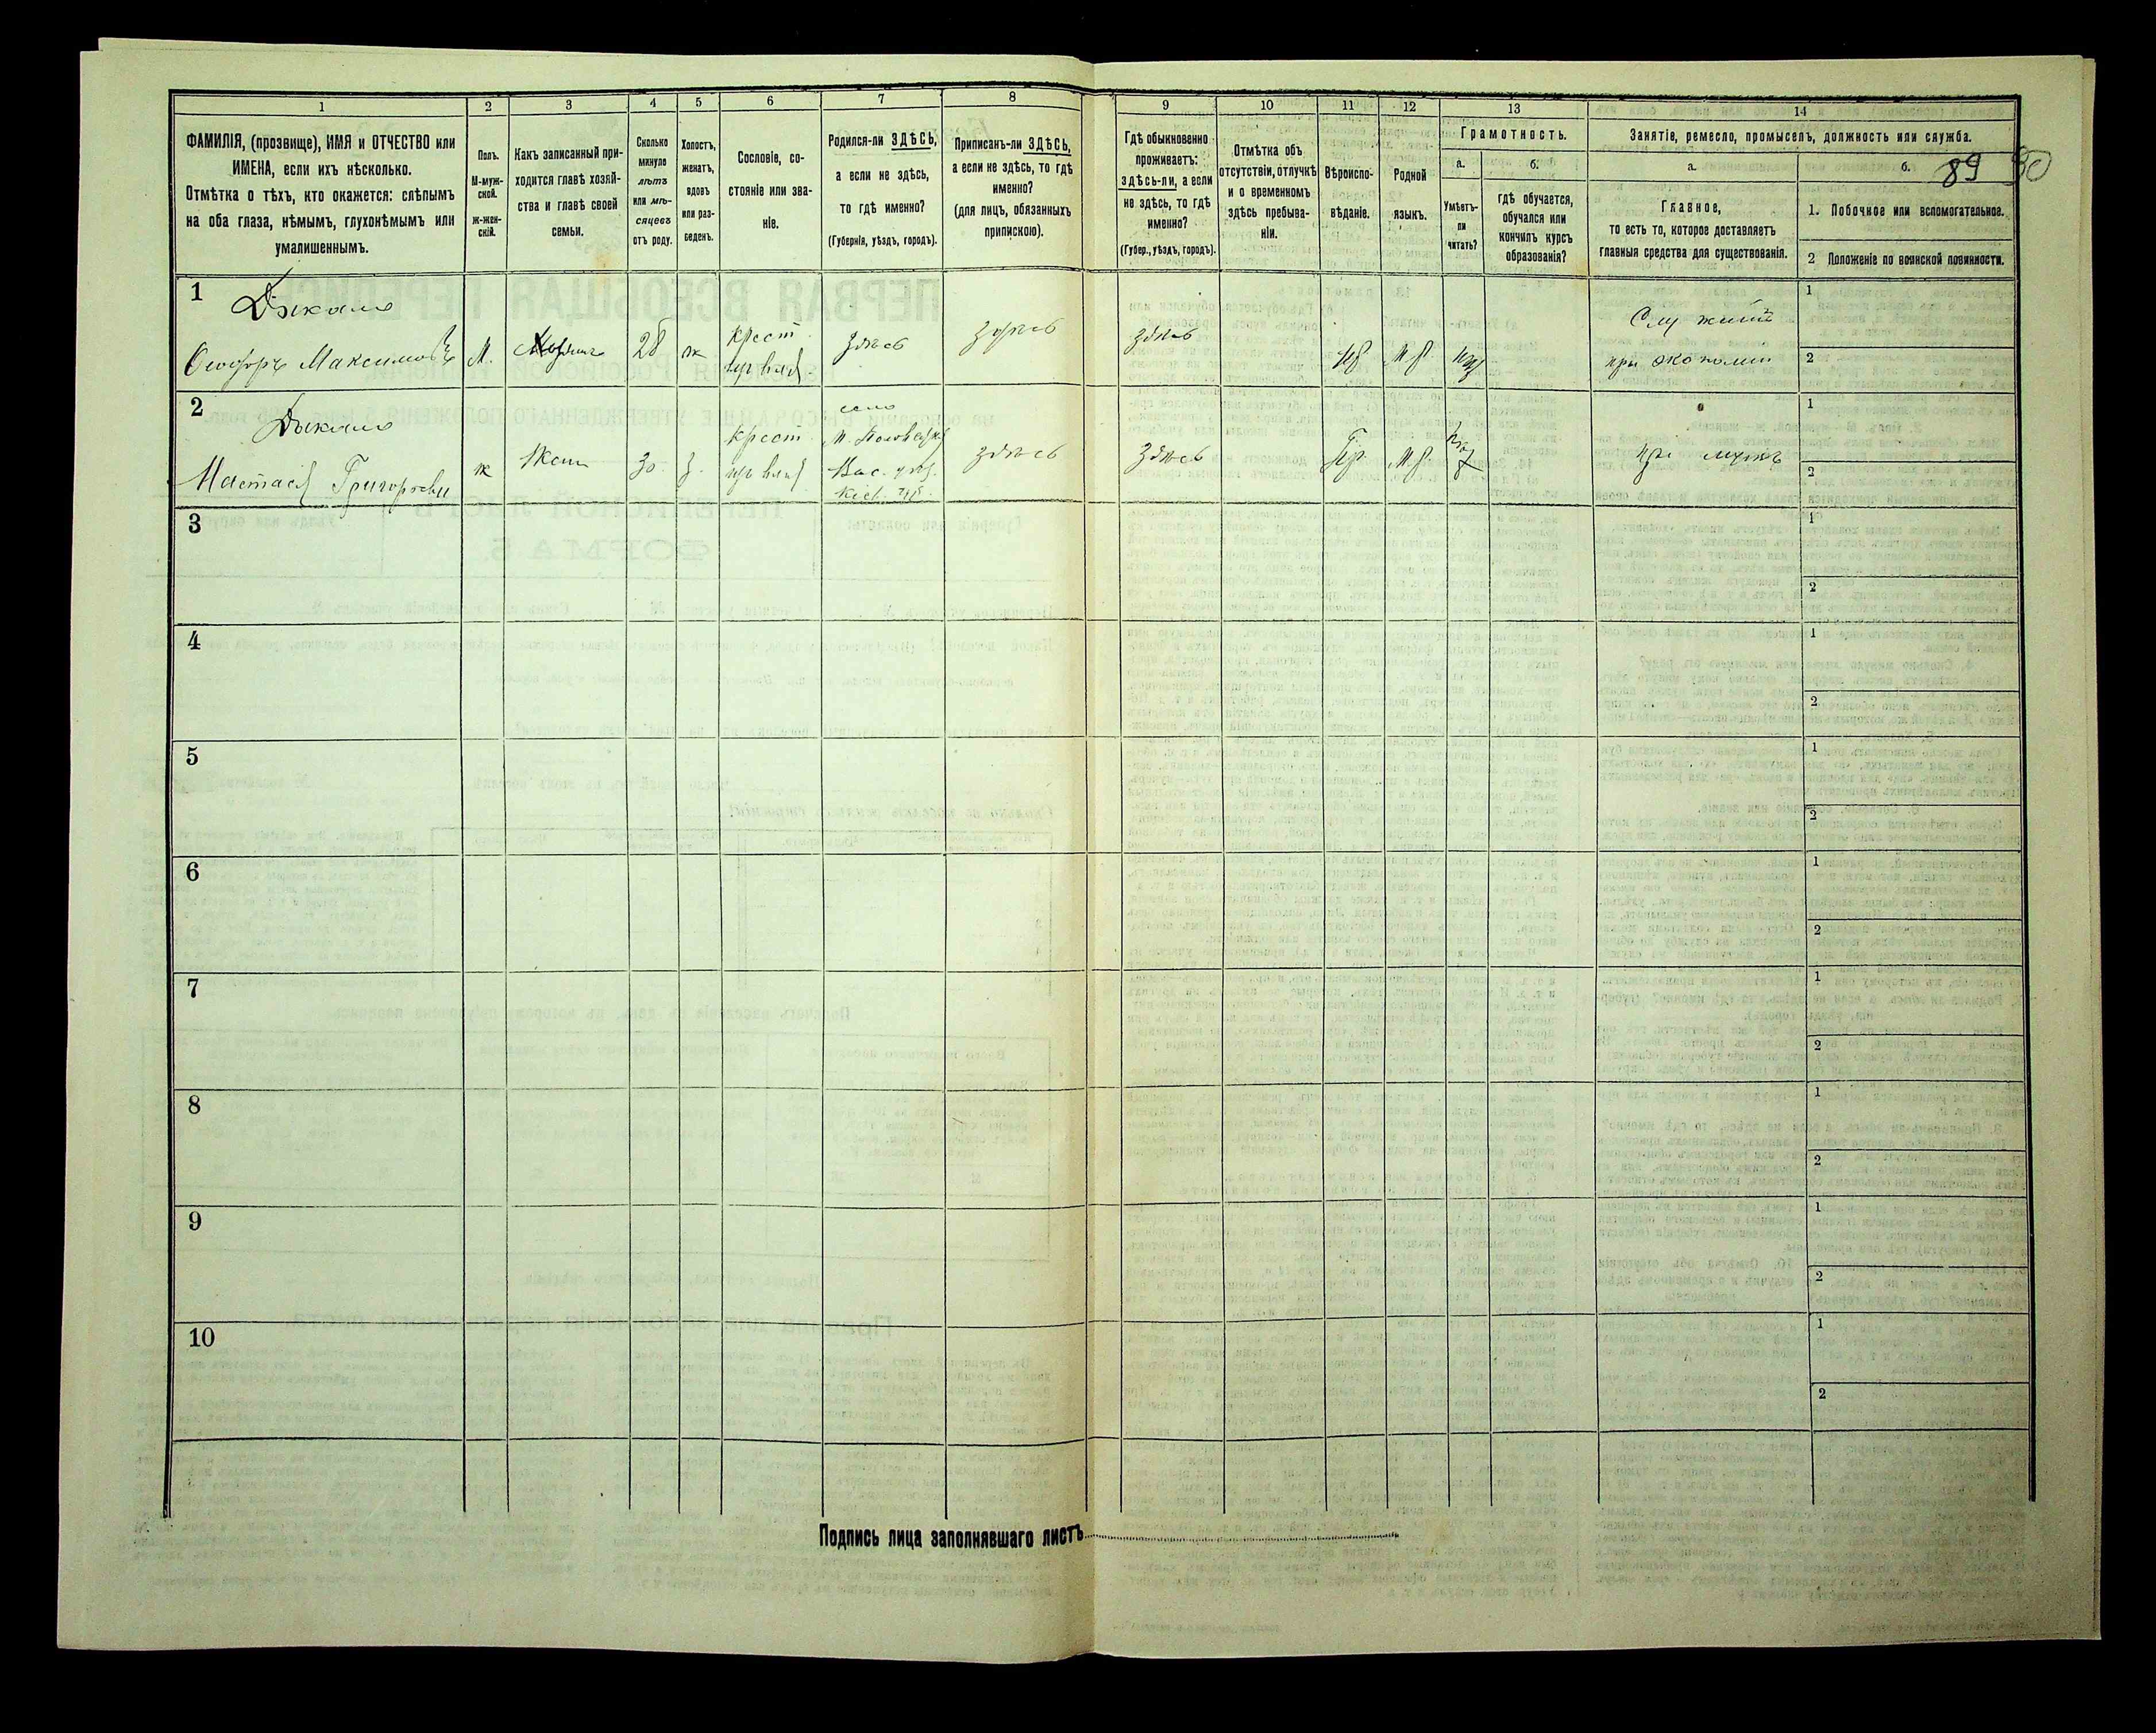 1 2 3 4 5 6 7 8 9 10 11 12 13 14
ФАМИЛІЯ, (прозвище), ИМЯ и ОТЧЕСТВО или
ИМЕНА, если ихъ нѣсколько.
Отмѣтка о тѣхъ, кто окажется: слѣпымъ
на оба глаза, нѣмымъ, глухонѣмымъ или
умалишеннымъ.
Полъ.
М-муж-
ской.
ж-жен-
скій.
Какъ записанный при-
ходится главѣ хозяй-
ства и главѣ своей
семьи.
Сколько
минуло
лѣтъ
или мѣ-
сяцевъ
отъ роду.
Холостъ,
женатъ,
вдовъ
или раз-
веденъ.
Сословіе, со-
стояніе или зва-
ніе.
Родился-ли ЗДѢСЬ,
а если не здѣсь,
то гдѣ именно?
(Губернія, уѣздъ, городъ).
Приписанъ-ли ЗДѢСЬ,
а если не здѣсь, то гдѣ
именно?
(для лицъ, обязанныхъ
припискою).
Гдѣ обыкновенно
проживаетъ:
здѣсь-ли, а если
не здѣсь, то гдѣ
именно?
(Губер., уѣздъ, городъ).
Отмѣтка объ
отсутствіи, отлучкѣ
и о временномъ
здѣсь пребыва-
ніи.
Вѣроиспо-
вѣданіе.
Родной
языкъ.
Грамотность.
а.
Умѣетъ-
ли
читать?
б.
гдѣ обучается,
обучался или
кончилъ курсъ
образованія?
Занятіе, ремесло, промыселъ, должность или служба.
а.
Главное,
то есть то, которое доставляетъ
главныя средства для существованія.
б.
89 90
1. Побочное или вспомогательное.
2 Положеніе по воинской повинности.
1
Ѳеодоръ Максимовъ
М.
28
ж
крест
здѣсь
здѣсь
здѣсь
М.р.
Служитъ
при экономіи
1
2
2
Настасія Григорьевн
ж
Жена
30.
З.
крест
село
Вас. уѣз.
Кіев. губ.
здѣсь
здѣсь
Пр.
М.р.
при мужѣ
1
2
3
1
2
4
1
2
5
1
2
6
1
2
7
1
2
8
1
2
9
1
2
10
1
2
Подпись лица заполнявшаго листъ